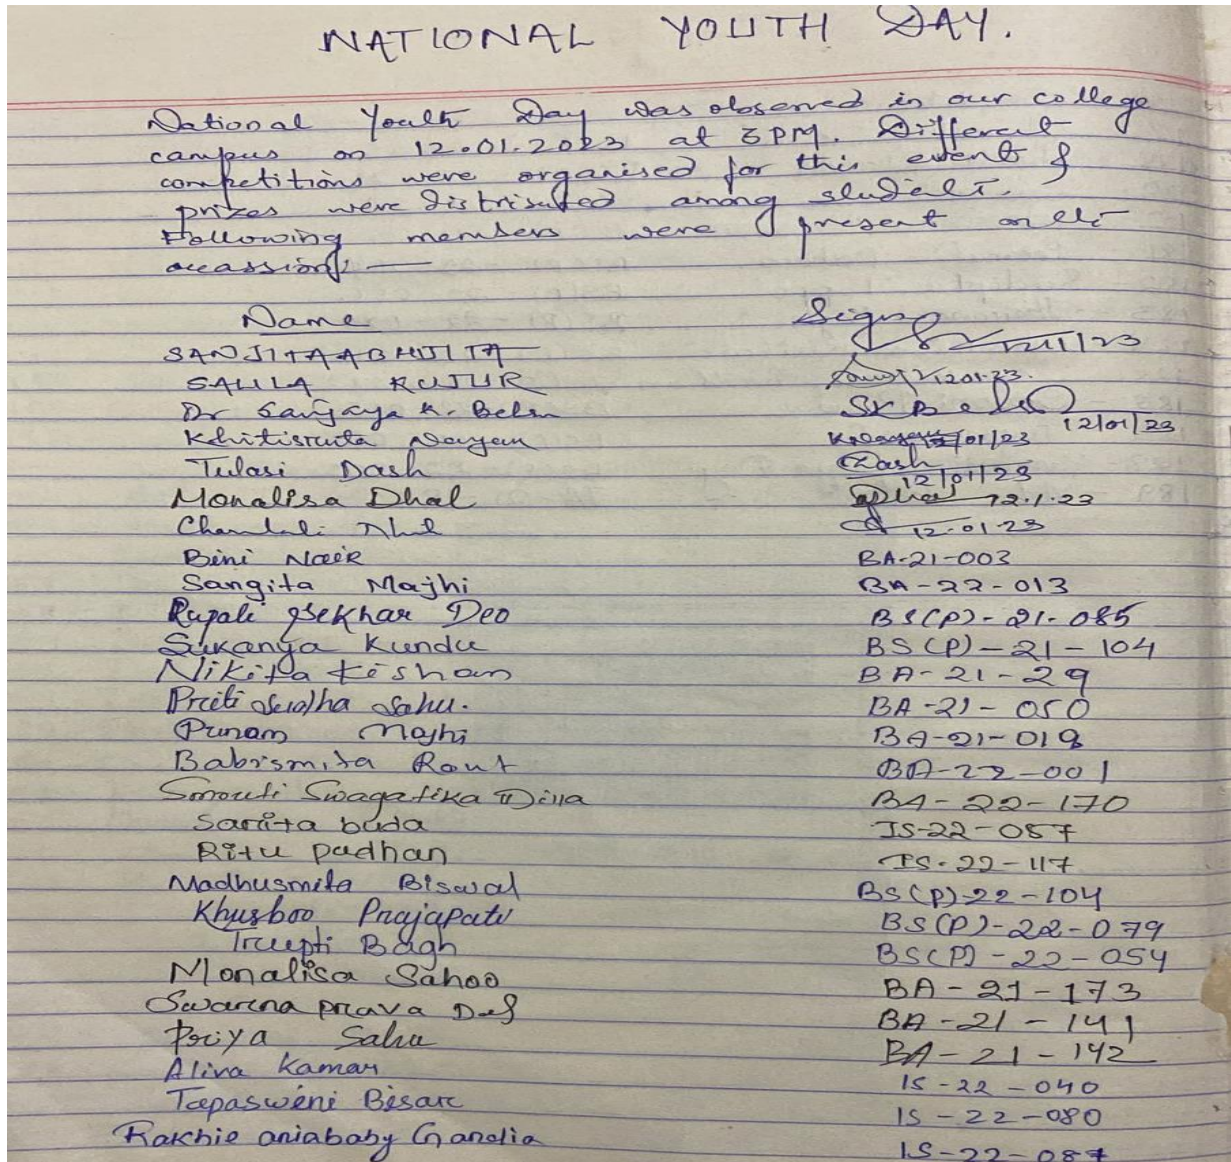 NATIONAL YOUTH DAY.
National Youth Day was observed in our college
campus on 12.01.2023 at 3PM. Different
competitions were organised for this event &
prizes were distributed among students.
Following members were present on the
occassion :—
Name Sign
SANJITA ABHIJITA
SALILA KUJUR 12.01.23.
Dr Sanjaya K. Behra SKBehra 12/01/23
Khitisruta Nayak /01/23
Tulasi Dash Dash 12/01/23
Monalisa Dhal Dhal 12.1.23
12-01-23
Bini Naik BA-21-003
Sangita Majhi BA-22-013
Rupali Sekhar Deo BS(P)-21-085
Sukanya Kundu BS(P)-21-104
Nikita Kishan BA-21-29
Priti Sudha Sahu. BA-21-050
Punam Majhi BA-21-018
Babismita Rout BA-22-001
Smruti Swagatika Dilla BA-22-170
Sarita buda IS-22-057
Ritu Padhan IS-22-117
Madhusmita Biswal BS(P)-22-104
Khusboo Prajapati BS(P)-22-079
Trupti Bagh BS(P)-22-054
Monalisa Sahoo BA-21-173
Swarna prava Das BA-21-141
Priya Sahu BA-21-142
Alina Kamar IS-22-040
Tapaswini Bisar IS-22-080
Rakhie aniababy Gandia IS-22-087